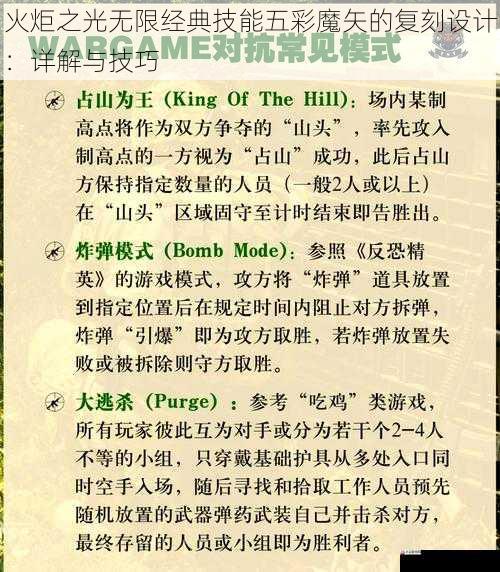 火炬之光无限经典技能五彩魔矢的复刻设计
：详解与技巧
WARGAME对抗常见模式
占山为王 (King Of The Hill)：场内某制
高点将作为双方争夺的“山头”，率先攻入
制高点的一方视为“占山”成功，此后占山
方保持指定数量的人员（一般2人或以上）
在“山头”区域固守至计时结束即告胜出。
炸弹模式 (Bomb Mode)：参照《反恐精
英》的游戏模式，攻方将“炸弹”道具放置
到指定位置后在规定时间内阻止对方拆弹，
炸弹“引爆”即为攻方取胜，若炸弹放置失
败或被拆除则守方取胜。
大逃杀 (Purge)：参考“吃鸡”类游戏，
所有玩家彼此互为对手或分为若干个2—4人
不等的小组，只穿戴基础护具从多处入口同
时空手入场，随后寻找和拾取工作人员预先
随机放置的武器弹药武装自己并击杀对方，
最终存留的人员或小组即为胜利者。